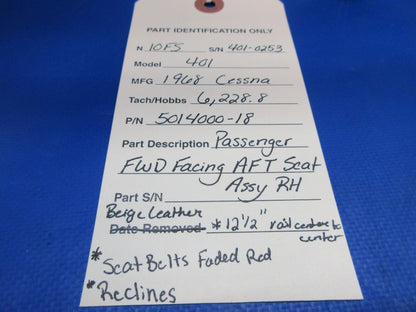 PART IDENTIFICATION ONLY
N 10FS S/N 401-0253
Model 401
MFG 1968 Cessna
Tach/Hobbs 6,228.8
P/N 5014000-18
Part Description Passenger
FWD Facing AFT Seat
Assy RH
Part S/N
Beige Leather
Date Removed * 12 1/2" rail center to
center
* Seat Belts Faded Red
* Reclines